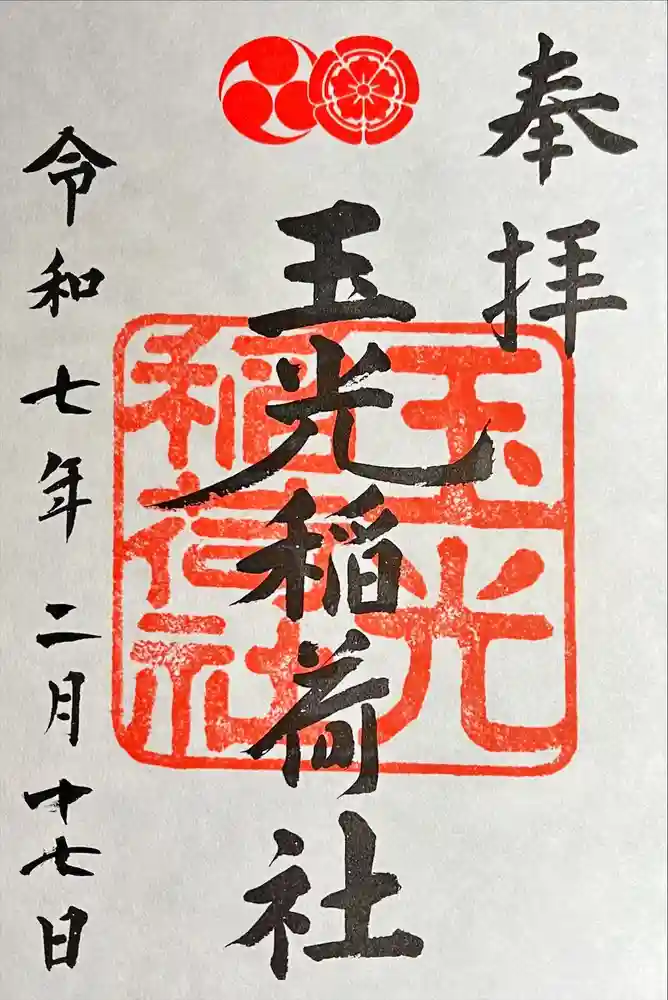 奉拝
玉光稲荷社
玉光
稲荷社
令和七年二月十七日